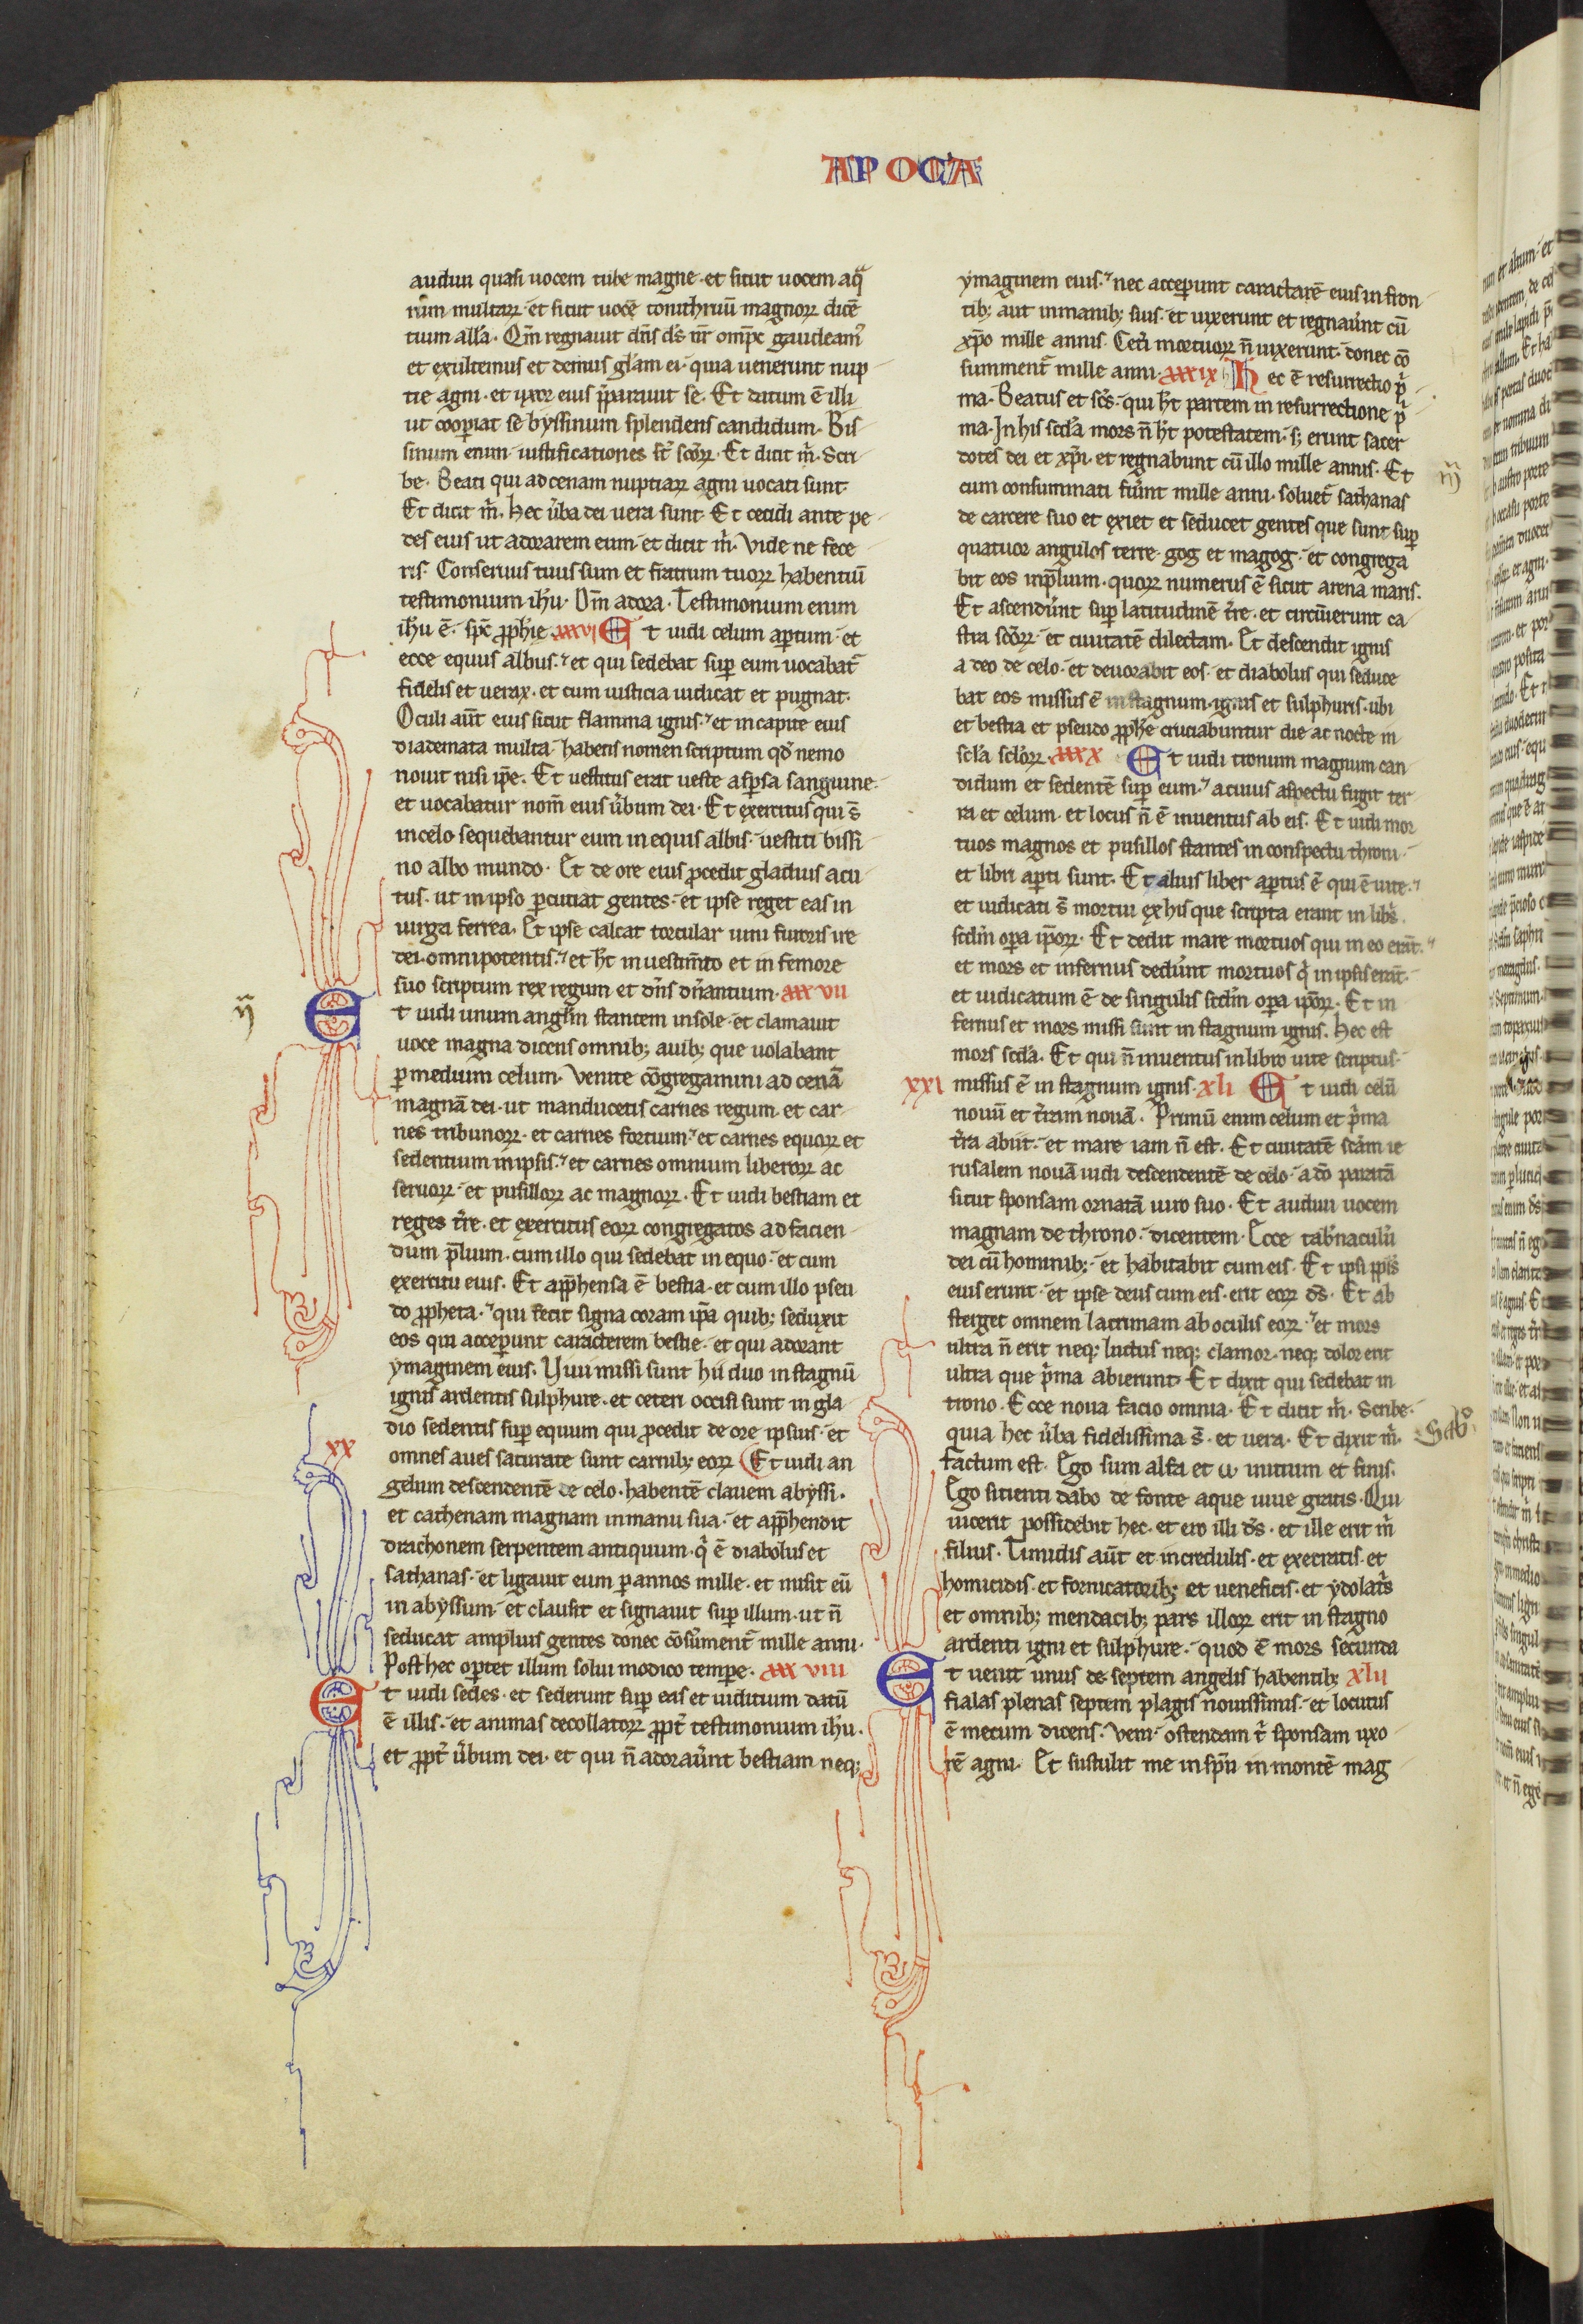 APOCA
audiui quasi uocem tube magne · et sicut uocem aqͣ
rum multaꝝ · et sicut uocē tonithruū magnoꝝ dicē
tium all̓a · Qm̄ regnauit dn̄s ds̓ nr̄ omp̄c gaudeam᷒
et exultemus et demus gl̓am ei · quia uenerunt nup
tie agni · et uxor eius p̄parauit se · Et datum ē illi
ut cooꝑiat se byssinum splendens candidum · Bis
sinum enim · iustificationes st̓ sc̄oꝝ · Et dicit m̓ · Scri
be · Beati qui ad cenam nuptiaꝝ agni uocati sunt ·
Et dicit m̓ · hec u̓ba dei uera sunt · Et cecidi ante pe
des eius ut adorarem eum · et dicit m̓ · Vide ne fece
ris · Conseruus tuus sum et fratrum tuoꝝ habentiū
testimonium ih̓u · Dm̄ adora · Testimonium enim
ih̓u ē · sp̄c ꝓph̓ie xxxvi Et uidi celum aꝑtum · et
ecce equus albus · et qui sedebat suꝑ eum uocabat᷑
fidelis et uerax · et cum iusticia iudicat et pugnat ·
Oculi aut̄ eius sicut flamma ignis · et in capite eius
diademata multa · habens nomen scriptum qd̓ nemo
nouit nisi ip̄e · Et uestitus erat ueste asꝑsa sanguine ·
et uocabatur nom̄ eius u̓bum dei · Et exercitus qui s̄
in celo sequebantur eum in equis albis · uestiti bissi
no albo mundo · Et de ore eius ꝓcedit gladius acu
tus · ut in ipso ꝑcutiat gentes · et ipse reget eas in
uirga ferrea · Et ipse calcat torcular uini furoris ire
dei omnipotentis · et ht̄ in uestim̄to et in femore
suo scriptum rex regum et dn̄s dn̄antium · xxxvii
ñ
Et uidi unum angl̓m stantem in sole · et clamauit
uoce magna dicens omnib; auib; que uolabant
ꝑ medium celum · Venite cōgregamini ad cenā
magnā dei · ut manducetis carnes regum · et car
nes tribunoꝝ · et carnes fortium · et carnes equoꝝ et
sedentium in ipsis · et carnes omnium liberoꝝ ac
seruoꝝ · et pusilloꝝ ac magnoꝝ · Et uidi bestiam et
reges t̓re · et exercitus eoꝝ congregatos ad facien
dum p̄lium · cum illo qui sedebat in equo · et cum
exercitu eius · Et app̄hensa ē bestia · et cum illo pseu
do ꝓpheta · qui fecit signa coram ip̄a quib; seduxit
eos qui acceꝑunt caracterem bestie · et qui adorant
ymaginem eius · Viui missi sunt hii duo in stagnū
ignis ardentis sulphure · et ceteri occisi sunt in gla
dio sedentis suꝑ equum qui ꝓcedit de ore ipsius · et
xx
omnes aues saturate sunt carnib; eoꝝ Et uidi an
gelum descendentē de celo · habentē clauem abyssi ·
et cathenam magnam in manu sua · et app̄hendit
drachonem serpentem antiquum · q̓ ē diabolus et
sathanas · et ligauit eum ꝑ annos mille · et misit eū
in abyssum · et clausit et signauit suꝑ illum · ut n̄
seducat amplius gentes donec cōsūment᷑ mille anni ·
Post hec oꝑtet illum solui modico tempe · xxxviii
Et uidi sedes · et sederunt suꝑ eas et iuditium datū
ē illis · et animas decollatoꝝ ꝓpt̓ testimonium ih̓u ·
et ꝓpt̓ u̓bum dei · et qui n̄ adorau̓nt bestiam neq;
ymaginem eius · nec acceꝑunt caractarē eius in fron
tib; aut in manib; suis · et uixerunt et regnau̓nt cū
xp̄o mille annis · Cet̓i mortuoꝝ n̄ uixerunt · donec cō
summent᷑ mille anni · xxxix Hec ē resurrectio p̓
ma · Beatus et sc̄s · qui ht̄ partem in resurrectione p̓
ma · In his scd̓a mors n̄ ht̄ potestatem · s; erunt sacer
dotes dei et xp̄i · et regnabunt cū illo mille annis · Et
ñ
cum consummati fu̓int mille anni · soluet᷑ sathanas
de carcere suo et exiet et seducet gentes que sunt suꝑ
quatuor angulos terre · gog et magog · et congrega
bit eos in p̄lium · quoꝝ numerus ē sicut arena maris ·
Et ascendu̓nt suꝑ latitudinē t̓re · et circūierunt ca
stra sc̄oꝝ · et ciuitatē dilectam · Et descendit ignis
a deo de celo · et deuorabit eos · et diabolus qui seduce
bat eos missus ē in stagnum ignis et sulphuris · ubi
et bestia et pseudo ꝓph̓e cruciabuntur die ac nocte in
scl̓a scl̓oꝝ · xxxx Et uidi tronum magnum can
didum et sedentē suꝑ eum · a cuius aspectu fugit ter
ra et celum · et locus n̄ ē inuentus ab eis · Et uidi mor
tuos magnos et pusillos stantes in conspectu throni ·
et libri aꝑti sunt · Et alius liber aꝑtus ē qui ē uite ·
et iudicati s̄ mortui ex his que scripta erant in lib̓s
scd̓m oꝑa ip̄oꝝ · Et dedit mare mortuos qui in eo erāt ·
et mors et infernus dedu̓nt mortuos q̓ in ipsis erāt ·
et iudicatum ē de singulis scd̓m oꝑa ipōꝝ · Et in
fernus et mors missi sunt in stagnum ignis · Hec est
mors scd̓a · Et qui n̄ inuentus in libro uite scriptus ·
xxi missus ē in stagnum ignis · xli Et uidi celū
nouū et t̓ram nouā · Primū enim celum et p̓ma
t̓ra abiit · et mare iam n̄ est · Et ciuitatē scām ie
rusalem nouā uidi descendentē de celo · a do̓ paratā
sicut sponsam ornatā uiro suo · Et audiui uocem
magnam de throno · dicentem · Ecce tab̓naculū
dei cū hominib; · et habitabit cum eis · Et ipsi ppl̓s
eius erunt · et ipse deus cum eis · erit eoꝝ ds̓ · Et ab
sterget omnem lacrimam ab oculis eoꝝ · et mors
ultra n̄ erit neq; luctus neq; clamor · neq; dolor erit
ultra que p̓ma abierunt · Et dixit qui sedebat in
trono · Ecce noua facio omnia · Et dicit m̓ · Scribe ·
quia hec u̓ba fidelissima s̄ · et uera · Et dixit m̓ ·
factum est · Ego sum alfa et ω · initium et finis ·
Ego sitienti dabo de fonte aque uiue gratis · Qui
uicerit possidebit hec · et ero illi ds̓ · et ille erit m̓
filius · Timidis aut̄ et incredulis · et execratis · et
homicidis · et fornicatorib; et ueneficis · et ydolat̓s
et omnib; mendacib; pars illoꝝ erit in stagno
ardenti igni et sulphure · quod ē mors secunda
Et uenit unus de septem angelis habentib; xlii
fialas plenas septem plagis nouissimis · et locutus
ē mecum dicens · Veni · ostendam t̓ sponsam uxo
rē agni · Et sustulit me in sp̄u in montē mag